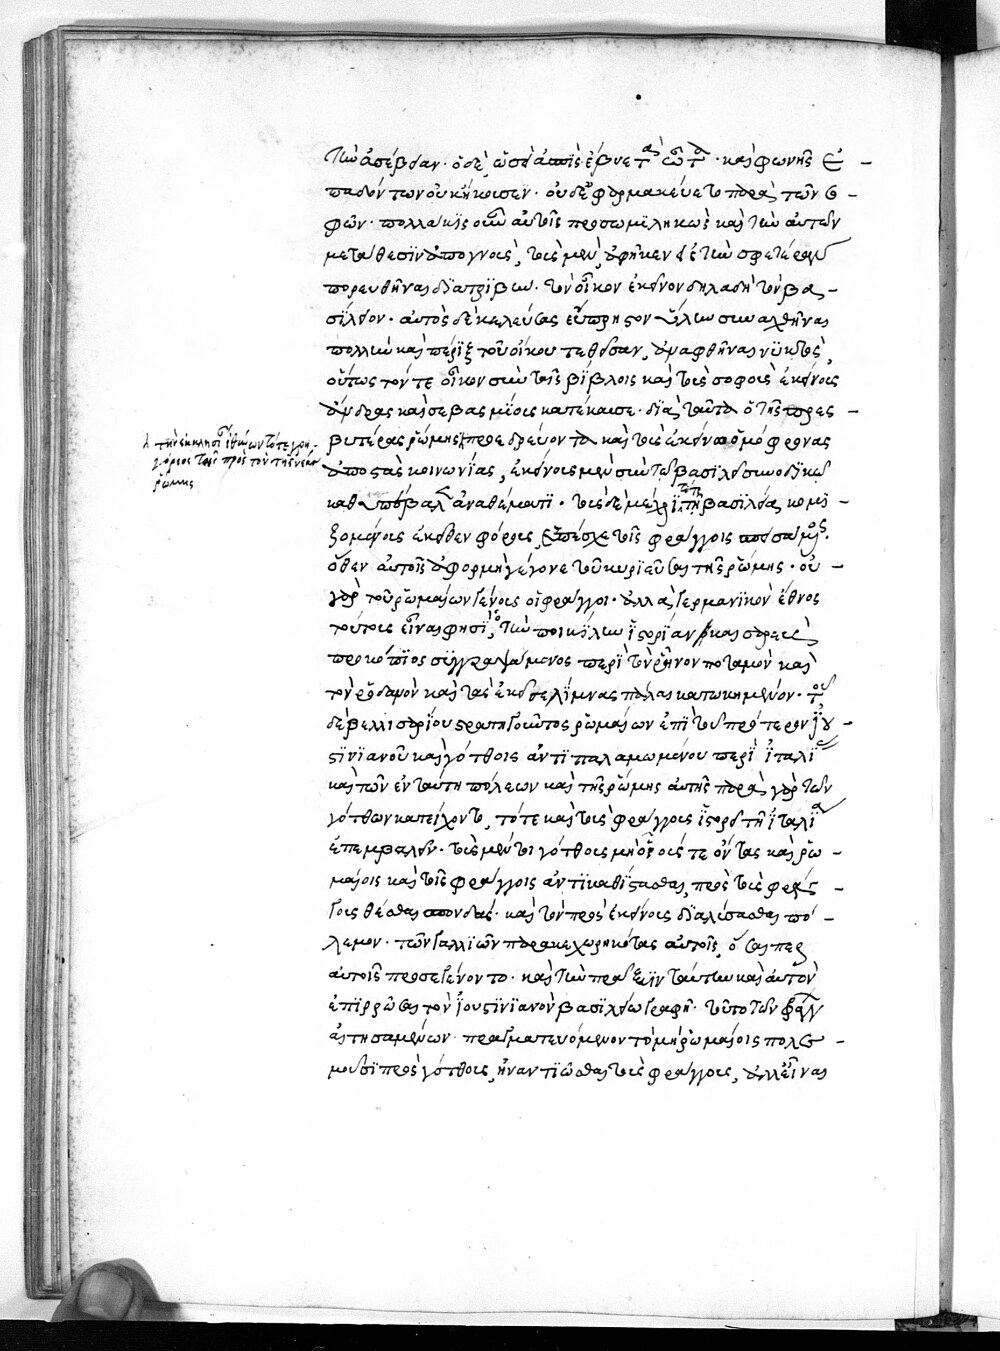 τὴν ἀσέβειαν· ὁ δὲ, ὡσεὶ ἀσπὶς ἔβυε τὰ ὦτα· καὶ φωνῆς ἐ-
παδόντων οὐκ ἤκουσεν· οὐδὲ φαρμακεύετο παρὰ τῶν σο-
φῶν· πολλάκις οὖν αὐτοῖς προσωμιληκὼς καὶ τὴν αὐτῶν
μετάθεσιν ἀπογνοὺς, τοὺς μὲν, ἀφῆκεν ἐς τὴν σφετέραν
πορευθῆναι διατριβὴν· τὸν οἶκον ἐκεῖνον δηλαδὴ τὸν βα-
σίλειον· αὐτὸς δὲ κελεύσας εὔπρηστον ὕλην συναχθῆναι
πολλὴν καὶ πέριξ τοῦ οἴκου τεθεῖσαν, ἀναφθῆναι νυκτὸς,
οὕτως τόν τε οἶκον σὺν ταῖς βίβλοις καὶ τοὺς σοφοὺς ἐκείνους
ἄνδρας καὶ σεβασμίους κατέκαυσε· διὰ ταῦτα ὁ τῆς πρεσ-
βυτέρας ῥώμης προεδρεύων καὶ τοὺς ἐκείνῳ ὁμόφρονας
ἀποστὰς κοινωνίας, ἐκείνους μὲν σὺν τῷ βασιλεῖ συνοδικῷ
καθυπέβαλεν ἀναθέματι· τοὺς δὲ μέχρι τότε τῷ βασιλεῖ κομι-
ζομένους ἐκεῖθεν φόρους, ἐπέσχε τοῖς φράγγοις σπεισάμενος·
ὅθεν αὐτοῖς ἀφορμὴ γέγονε τοῦ κυριεῦσαι τῆς ῥώμης· οὐ
γὰρ τοῦ ῥωμαίων γένους οἱ φράγγοι· ἀλλὰ γερμανικὸν ἔθνος
τούτους εἶναι φησὶν, ὁ τὴν ποικίλην ἱστορίαν καισαρεὺς
προκόπιος συγγραψάμενος περὶ τὸν ῥῆνον ποταμὸν καὶ
τὸν ῥοδανὸν καὶ τὰς ἐκεῖσε λίμνας πάλαι κατῳκημένον· τοῦ
δὲ βελλισαρίου στρατηγοῦντος ῥωμαίων ἐπὶ τοῦ προτέρου ἰου-
στινιανοῦ καὶ γότθοις ἀντιπαλαμωμένου περὶ ἰταλίας
καὶ τῶν ἐν ταύτῃ πόλεων καὶ τῆς ῥώμης αὐτῆς παρὰ γὰρ τῶν
γότθων κατείχοντο, τότε καὶ τοὺς φράγγους ἱστορεῖ τῇ ἰταλίᾳ
ἐπεμβαλεῖν· τοὺς μέντοι γότθους μὴ οἵους τε ὄντας καὶ ῥω-
μαίοις καὶ τοῖς φράγγοις ἀντικαθίστασθαι, πρὸς τοὺς φράγ-
γους θέσθαι σπονδάς· καὶ τὸν πρὸς ἐκείνους διαλύσασθαι πό-
λεμον· τῶν γαλλιῶν παρακεχωρηκότας αὐτοῖς, ὅσαιπερ
αὐτοῖς προσεγένοντο· καὶ τὴν πρᾶξιν ταύτην καὶ αὐτὸν
ἐπιρρῶσαι τὸν ἰουστινιανὸν βασιλείῳ γραφῇ· τοῦτο τῶν φράγγων
αἰτησαμένων· πραγματευόμενον τὸ μὴ ῥωμαίοις πολε-
μοῦσι πρὸς γότθους, ἠναντιῶσθαι τοὺς φράγγους, ἀλλ' εἶναι
τὴν ἐκκλησίαν ἰθύνων τότε γρη-
γόριος τῆς πρὸς τὸν τῆς νέας
ῥώμης